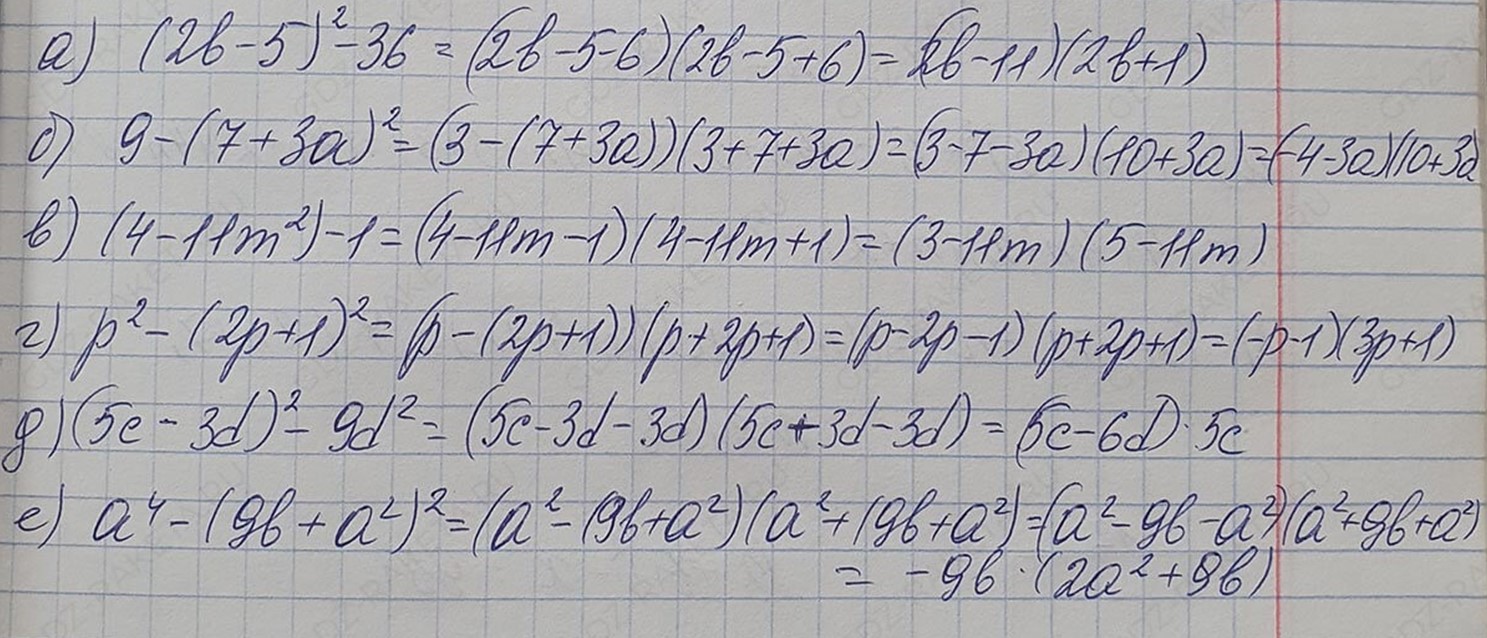 а) (2b-5)²-36 = (2b-5-6)(2b-5+6) = (2b-11)(2b+1)
б) 9-(7+3a)² = (3-(7+3a))(3+7+3a) = (3-7-3a)(10+3a) = (-4-3a)(10+3a
в) (4-11m²)-1 = (4-11m-1)(4-11m+1) = (3-11m)(5-11m)
г) p²-(2p+1)² = (p-(2p+1))(p+2p+1) = (p-2p-1)(p+2p+1) = (-p-1)(3p+1)
д) (5c-3d)²-9d² = (5c-3d-3d)(5c+3d-3d) = (5c-6d)·5c
е) a⁴-(9b+a²)² = (a²-(9b+a²)(a²+(9b+a²) = (a²-9b-a²)(a²+9b+a²)
= -9b·(2a²+9b)